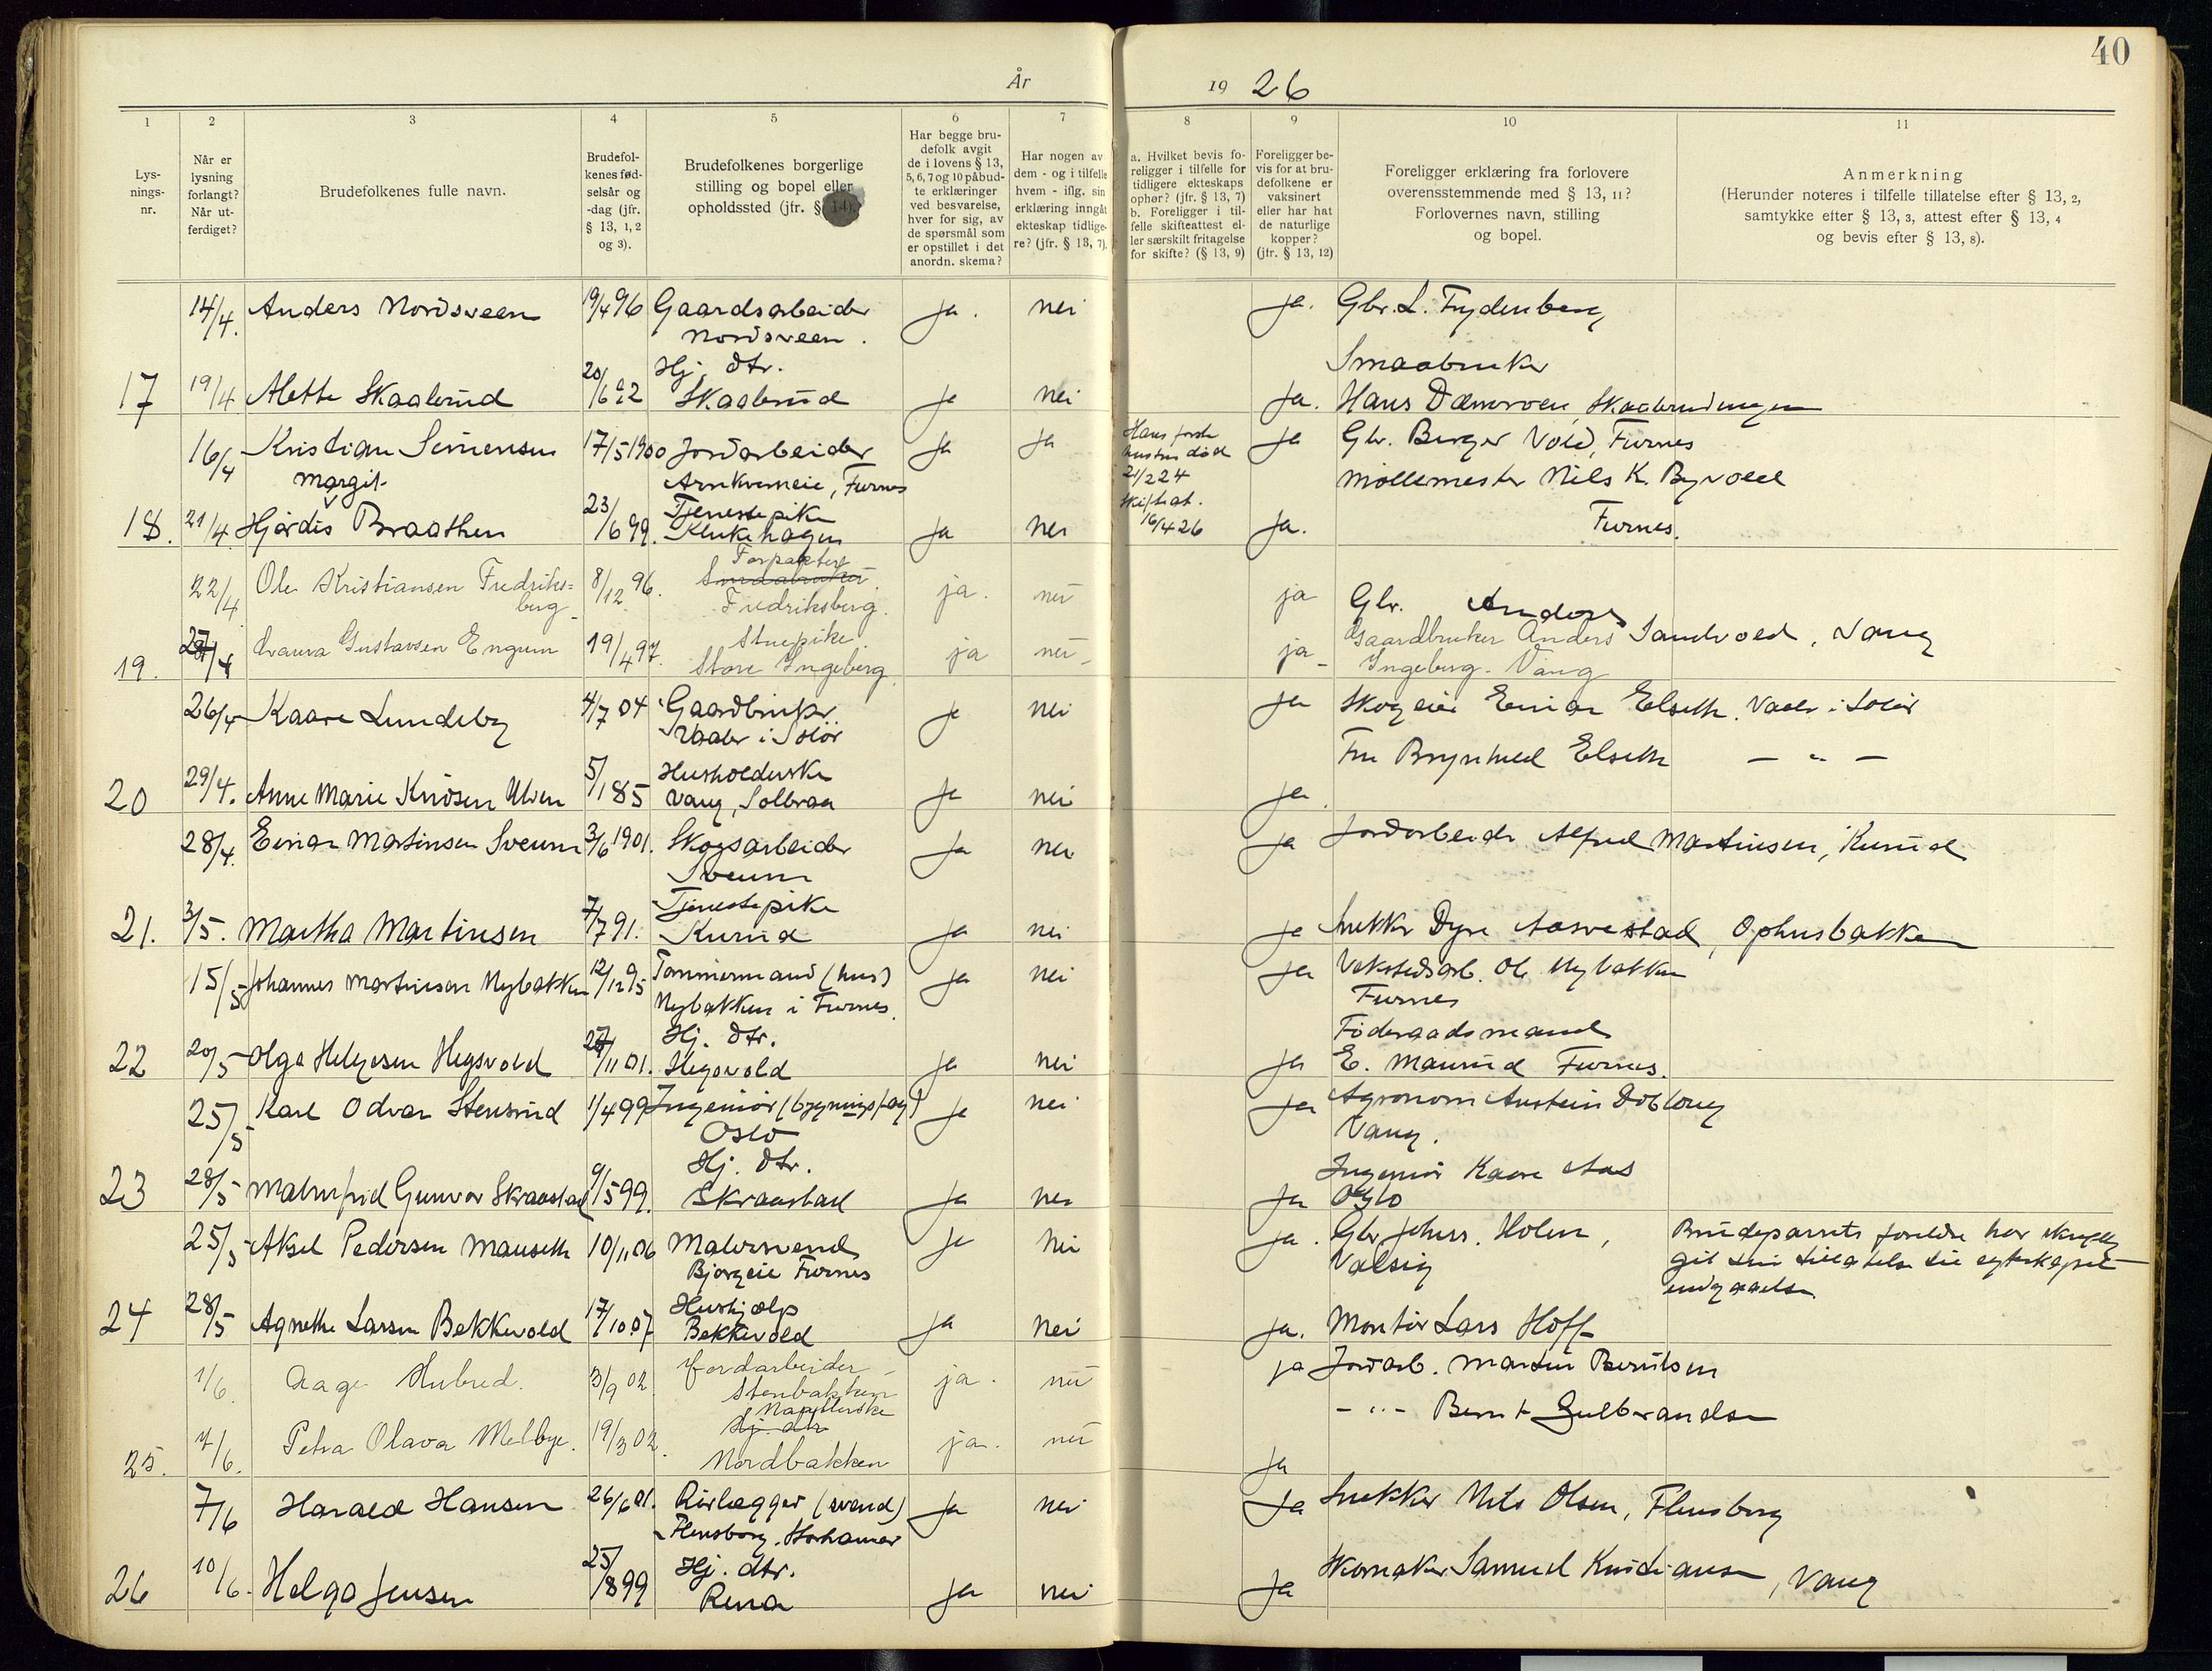 40
År 19 26
1 2 3 4 5 6 7 8 9 10 11
Lys-
nings-
nr.
Når er
lysning
forlangt?
Når ut-
ferdiget?
Brudefolkenes fulle navn.
Brudefol-
kenes fød-
selsår og
-dag (jfr.
§ 13, 1, 2
og 3).
Brudefolkenes borgerlige
stilling og bopel eller
opholdssted (jfr. § 14).
Har begge bru-
defolk avgit
de i lovens § 13,
5, 6, 7 og 10 påbud-
te erklæringer
ved besvarelse,
hver for sig, av
de spørsmål som
er opstillet i det
anordn. skema?
Har nogen av
dem - og i tilfelle
hvem - iflg. sin
erklæring inngåt
ekteskap tidlige-
re? (jfr. § 13, 7).
a. Hvilket bevis fo-
religger i tilfelle for
tidligere ekteskaps
ophør? (jfr. § 13, 7)
b. Foreligger i til-
felle skifteattest el-
ler særskilt fritagelse
for skifte? (§ 13, 9)
Foreligger be-
vis for at bru-
defolkene er
vaksinert
eller har hat
de naturlige
kopper?
(jfr. § 13, 12)
Foreligger erklæring fra forlovere
overensstemmende med § 13, 11?
Forlovernes navn, stilling
og bopel.
Anmerkning
(Herunder noteres i tilfelle tillatelse efter § 13, 2,
samtykke efter § 13, 3, attest efter § 13, 4
og bevis efter § 13, 8).
14/4. Anders Nordsveen 19/4 96 Gaardsarbeider ja. nei ja. Gbr. L. Frydenberg
Nordsveen.
Hj. dtr. Smaabruker
17 19/4 Alette Skaabrud 20/6 02 Skaabrud ja nei ja. Hans
16/4 Kristian Simensen 17/5 1900 Jordarbeider ja ja Hans første ja Gbr. Berger Vold, Furnes
hustru død
Margit Arnkverneie, Furnes 21/2 24 møllemester Nils K. Byvold
Tjenestepike Skifteat.
18. 21/4. Hjørdis Braathen 23/6 99. Klukehagen ja nei 16/4 26 ja. Furnes.
Forpakter
22/4 Ole Kristiansen Fredriks= 8/12 96. Smaabruker ja. nei ja Gbr. Anders
berg Fredriksberg.
Laura Gustavsen Engum 19/4 97. Stuepike ja nei ja Gaardbruker Anders Sandvold, Vang
19. Store Ingeberg Ingeberg. Vang
26/4 Kaare Lundeby 4/7 04 Gaardbruker ja nei ja Skogeier Einar Elseth. Vaaler i Solør
Vaaler i Solør
Husholderske Fru Brynhild Elseth — " —
20 29/4. Anne Marie Knudsen Ulven 5/1 85 Vang, Solbraa ja nei ja.
28/4. Einar Martinsen Sveum 3/6 1901. Skogsarbeider ja nei ja Jordarbeider Alfred Martinsen, Kurud
Sveum
Tjenestepike
21. 3/5. Martha Martinsen 7/7 91. Kurud ja nei ja Snekker Dyre Aasvestad, Ophusbakken
15/5 Johannes Martinsen Nybakken 12/12 95 Tømmermand (hus) ja nei ja Verkstedsarb. Ole Nybakken
Nybakken i Furnes. Furnes
Hj. dtr. Føderaadsmand
22 20/5 Olga Helgesen Hegsvold 27/11 01. Hegsvold ja nei ja E. Maurud Furnes.
25/5 Karl Odvar Stensrud 1/4 99 Ingeniør (bygningsfag) ja nei ja Agronom Austein Dobloug
Oslo Vang.
Hj. dtr. Ingeniør Kaare Aas
23 28/5 Malmfrid Gunvor Skraastad 9/5 99. Skraastad ja nei ja Oslo
25/5 Aksel Pedersen Mauseth 10/11 06 Malersvend ja nei ja. Gbr. Johs. Holen, Brudeparrets foreldre har skriftlig
Bjørgeie Furnes Valsig git sin tillatelse til egteskapets
Hushjælp indgaaelse.
24 28/5 Agnethe Larsen Bekkevold 17/10 07 Bekkevold ja nei ja. Montør Lars Hoff
1/6. Aage Hubred. 3/9 02 Jordarbeider ja. nei ja Jordarb. Martin Berntsen
Stenbakken
Hj. dtr. — " — Bernt Gulbrandsen
25. 4/6. Petra Olava Melbye. 19/3 02. Nordbakken ja. nei ja
7/6 Harald Hansen 26/6 01. Rørlægger (svend) ja nei ja Snekker Nils Olsen, Flensborg
Flensborg, Storhamar
Hj. dtr.
26 10/6. Helga Jensen 25/8 99 Rena ja nei ja Skomaker Samuel Kristiansen, Vang